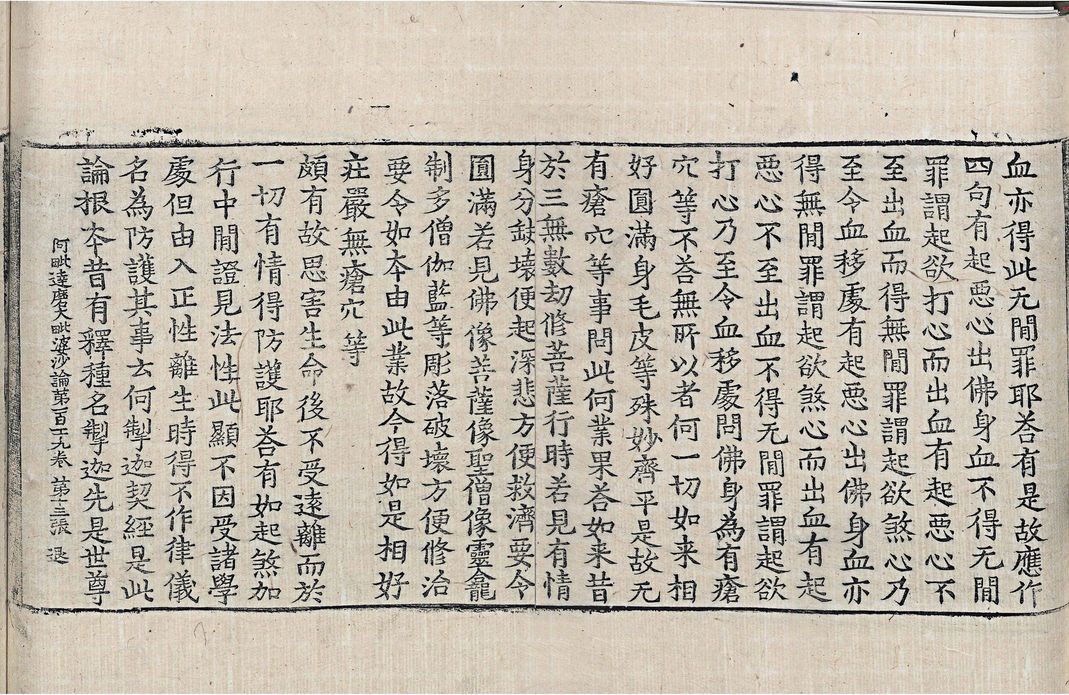 血亦得此无閒罪耶荅有是故應作
四句有起惡心出佛身血不得无閒
罪謂起欲打心而出血有起惡心不
至出血而得無閒罪謂起欲煞心乃
至令血移處有起惡心出佛身血亦
得無閒罪謂起欲煞心而出血有起
惡心不至出血不得无閒罪謂起欲
打心乃至令血移處問佛身為有瘡
穴等不荅無所以者何一切如来相
好圓滿身毛皮等殊妙齊平是故无
有瘡穴等事問此何業果荅如来昔
於三無數劫修菩薩行時若見有情
身分缺壞便起深悲方便救濟要令
圓滿若見佛像菩薩像聖僧像靈龕
制多僧伽藍等彫落破壞方便修治
要令如夲由此業故今得如是相好
莊嚴無瘡穴等
頗有故思害生命後不受遠離而於
一切有情得防護耶荅有如起煞加
行中閒證見法性此顯不因受諸學
處但由入正性離生時得不作律儀
名為防護其事云何掣迦契經是此
論根夲昔有釋種名掣迦先是世尊
阿毗達磨大毗婆沙論第一百一十九卷 第三張 退